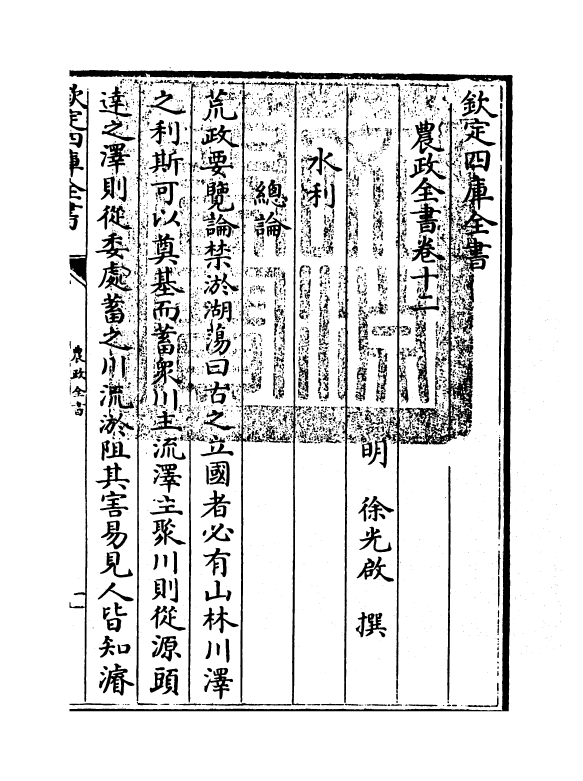 欽定四庫全書
農政全書卷十二
明 徐光啟 撰
水利
總論
荒政要覽論禁淤湖蕩曰古之立國者必有山林川澤
之利斯可以奠基而蓄衆川主流澤主聚川則從源頭
達之澤則從委處蓄之川流淤阻其害易見人皆知濬
欽定四庫全書
農政全書